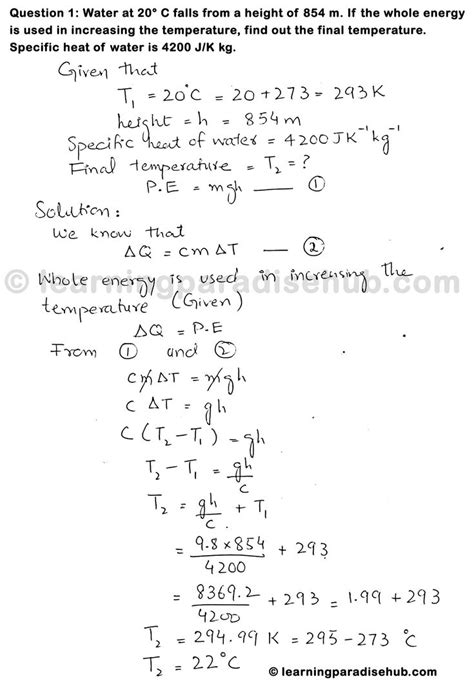 Question 1: Water at 20° C falls from a height of 854 m. If the whole energy
is used in increasing the temperature, find out the final temperature.
Specific heat of water is 4200 J/K kg.
Given that
T₁ = 20°C = 20 + 273 = 293K
height = h = 854 m
Specific heat of water = 4200 JK⁻¹kg⁻¹
Final temperature = T₂ = ?
P.E = mgh —— ①
Solution:
We know that
ΔQ = cmΔT —— ②
© learningparadisehub.com
Whole energy is used in increasing the
temperature (Given)
ΔQ = P.E
From ① and ②
cmΔT = mgh
c ΔT = gh
c (T₂ - T₁) = gh
T₂ - T₁ = gh/c
T₂ = gh/c. + T₁
= 9.8 × 854/4200 + 293
= 8369.2/4200 + 293 = 1.99 + 293
T₂ = 294.99 K = 295 - 273 °C
T₂ = 22°C
© learningparadisehub.com